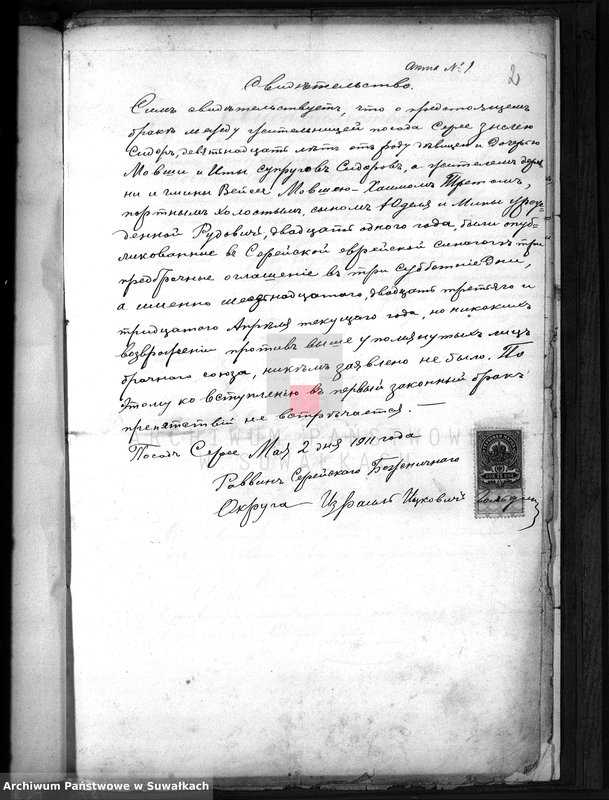 Актъ № 1
2
Свидѣтельство.
Симъ свидѣтельствуетъ, что о предстоящемъ
бракѣ между жительницей посада Серее Знелею
Сидоръ, девятнадцать лѣтъ отъ роду дѣвицей и дочерью
Мовши и Иты супруговъ Сидоровъ, а жителемъ дерев
ни и гмины Вейсее Мовшею-Хаимомъ
портнымъ холостымъ, сыномъ Юделя и Мины урож
денной Рудовичъ, двадцать одного года, были опуб-
ликованные въ Серейской еврейской синагогѣ три
предбрачные оглашение въ три субботніе дни,
а именно шестнадцатого, двадцать третьяго и
тридцатого Апрѣля текущаго года, но никакихъ
возраженій противъ выше упомянутыхъ лицъ
брачного союза, никѣмъ заявлено не было. По
этому ко вступленію въ первый законный бракъ
препятствій не встрѣчается. —
Посадъ Серее Мая 2 дня 1911 года
Раввинъ Серейского Божничного
Округа Израиль Ицковичъ
ARCHIWUM PAŃSTWOWE
W SUWAŁKACH
Archiwum Państwowe w Suwałkach